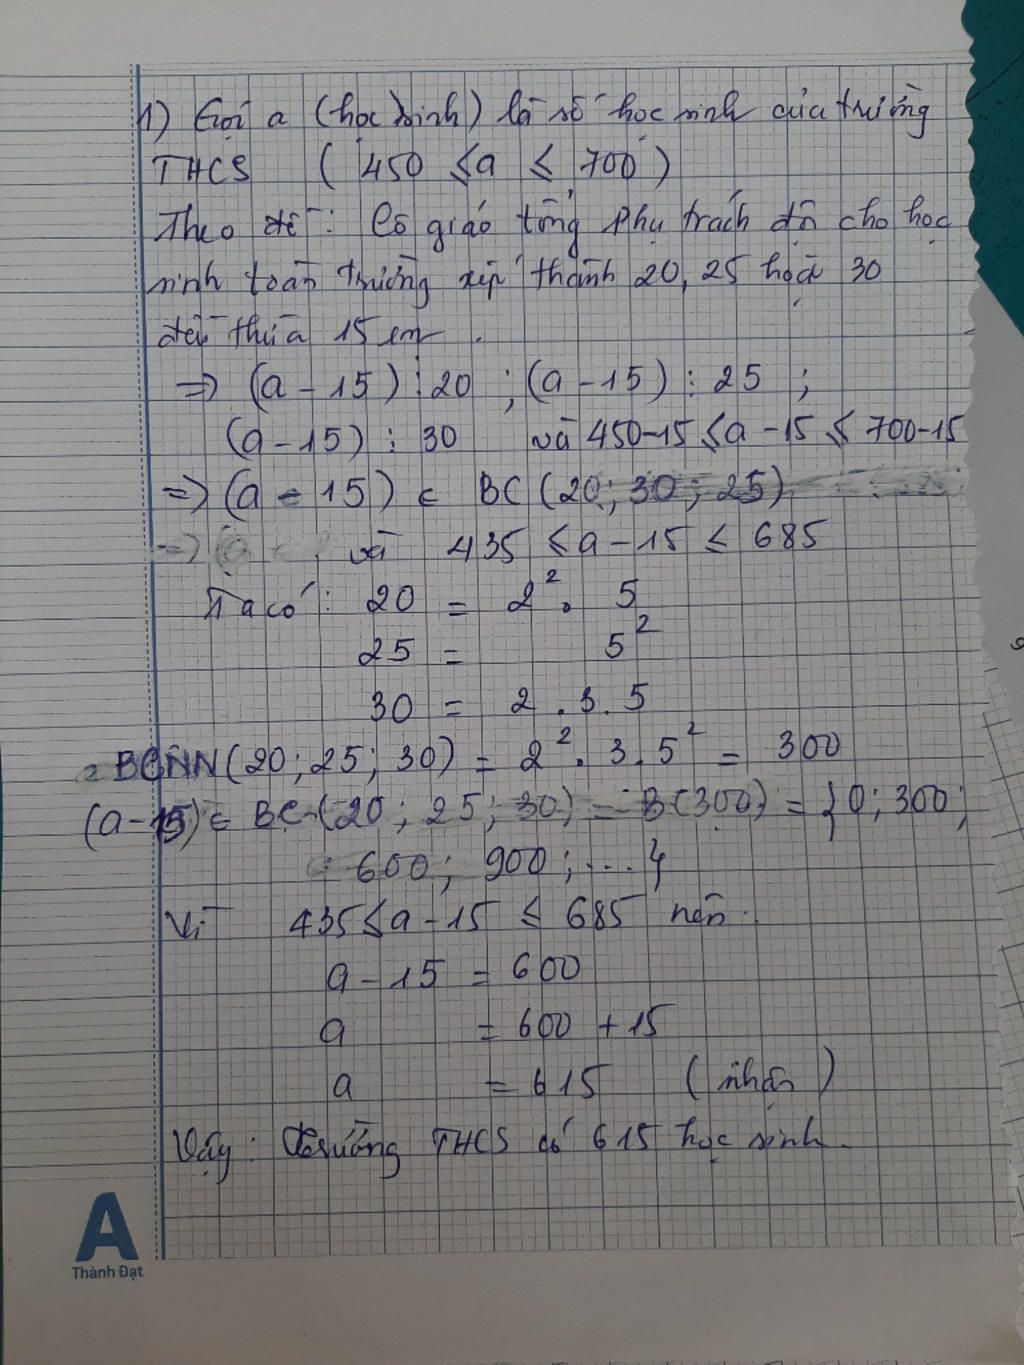 1) Gọi a (học sinh) là số học sinh của trường
THCS ( 450 ≤ a ≤ 700 )
Theo đề : Cô giáo tổng phụ trách đội cho học
sinh toàn trường xếp thành 20, 25 hoặc 30
đều thừa 15 em .
=> (a - 15) ⋮ 20 ; (a - 15) ⋮ 25 ;
(a - 15) ⋮ 30 và 450-15 ≤ a - 15 ≤ 700-15
=> (a - 15) ∈ BC (20; 30; 25)
và 435 ≤ a - 15 ≤ 685
Ta có : 20 = 2² . 5
25 = 5²
30 = 2 . 3 . 5
BCNN (20 ; 25 ; 30) = 2² . 3 . 5² = 300
(a - 15) ∈ BC (20 ; 25 ; 30) = B(300) = {0 ; 300 ;
600 ; 900 ; ... }
Vì 435 ≤ a - 15 ≤ 685 nên
a - 15 = 600
a = 600 + 15
a = 615 (nhận)
Vậy : trường THCS có 615 học sinh .
A
Thành Đạt